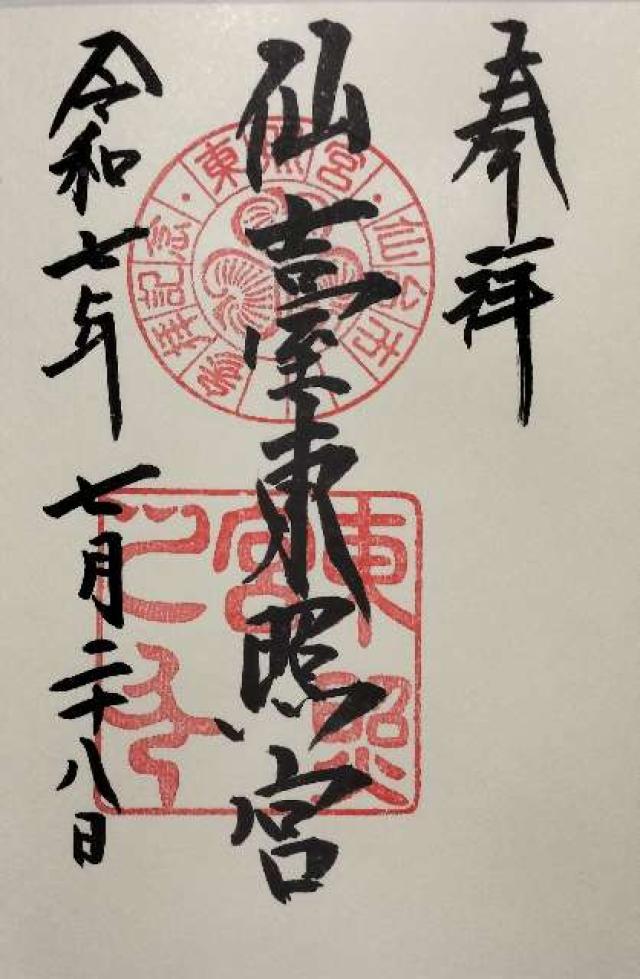 奉拝
仙臺東照宮
令和七年七月二十八日
東照宮・仙台市
參拝記念
東照宮之印